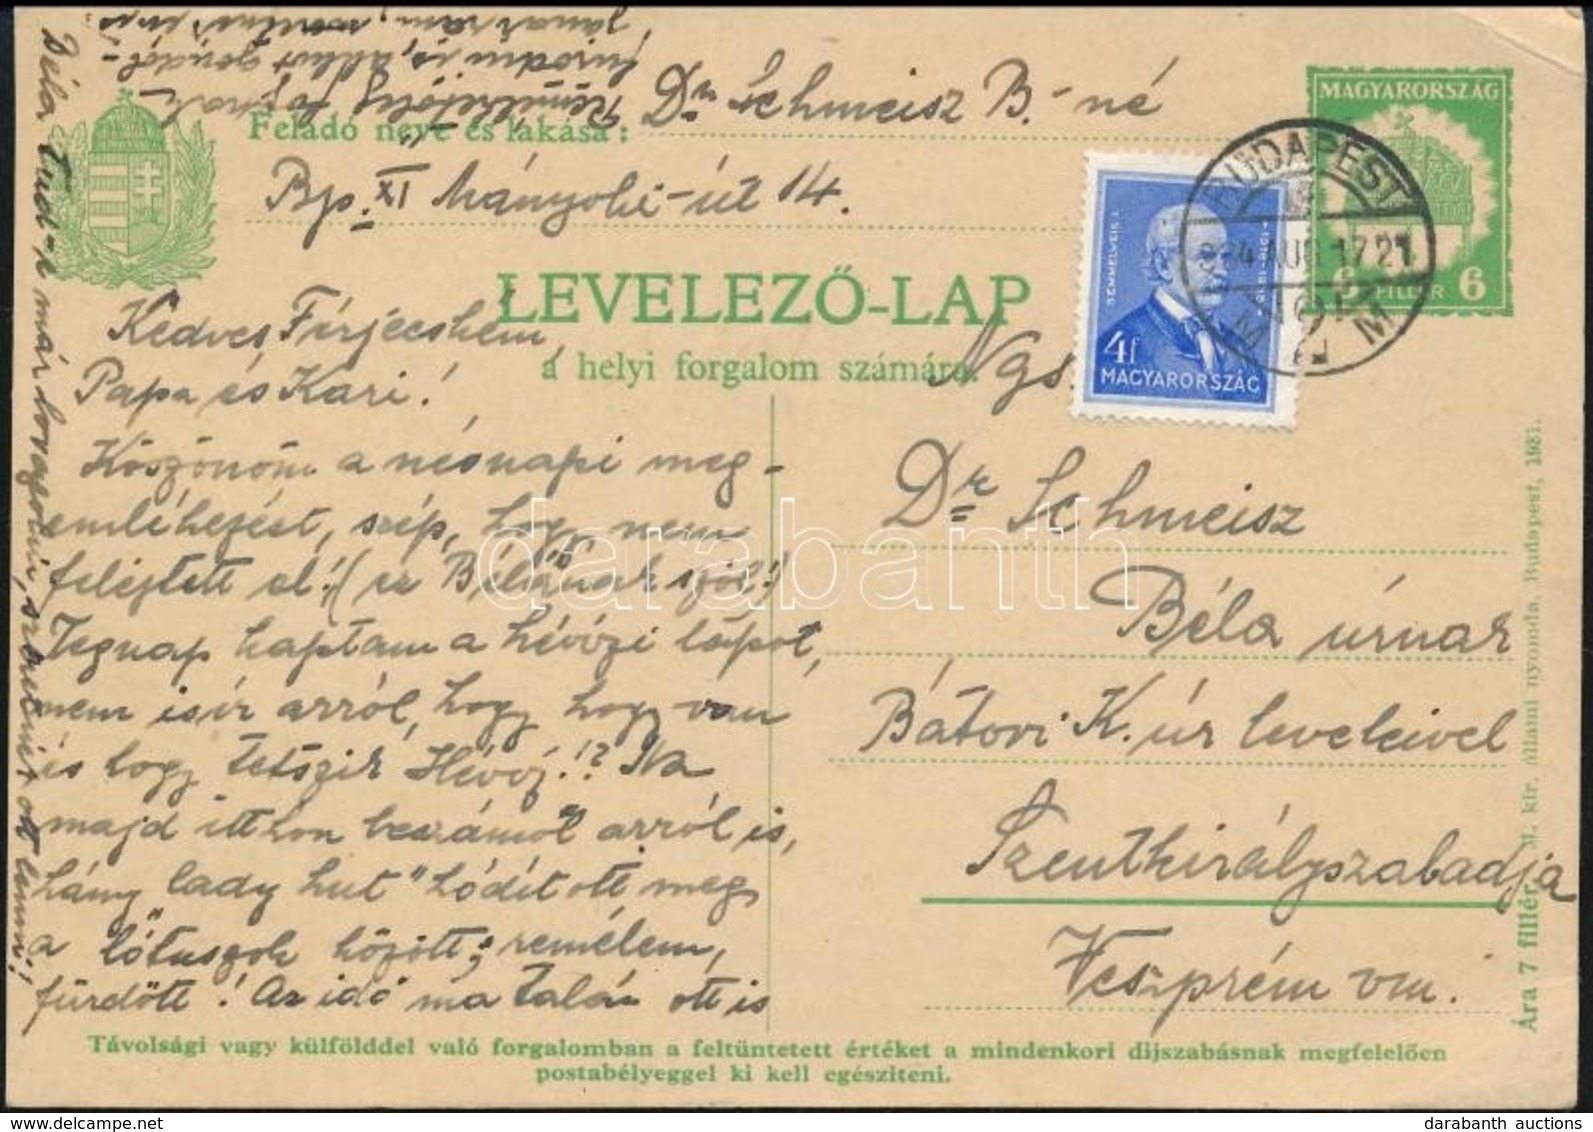 Feladó neve és lakása:
Dr. Schmeisz B.-né
Bp. XI Mányoki-út 14.
MAGYARORSZÁG
6 FILLÉR 6
BUDAPEST
SEMMELWEIS I.
4f
MAGYARORSZÁG
LEVELEZŐ-LAP
a helyi forgalom számára.
Kedves Férjecském,
Papa és Kari!
Köszönöm a névnapi meg-
emlékezést, szép, hogy nem
felejtett el! (ez Bélának szól!)
Tegnap kaptam a hévizi lapot,
nem is ír arról, hogy hogy van
és hogy tetszik Héviz!? Na
majd itthon beszámol arról is,
hány "lady-ket" hódított meg
a lótuszok között; remélem,
fürdött! Az idő ma talán ott is
Remélhetőleg Papának
Béla tud-e már lovagolni, szeretnék ott lenni!
Ngs
Dr. Schmeisz
Béla úrnak
Bátori K. úr leveleivel
Szentkirályszabadja
Veszprém vm.
Ára 7 fillér. M. kir. állami nyomda. Budapest, 1931.
Távolsági vagy külfölddel való forgalomban a feltüntetett értéket a mindenkori díjszabásnak megfelelően
postabélyeggel ki kell egészíteni.
darabanth
darabanth auctions